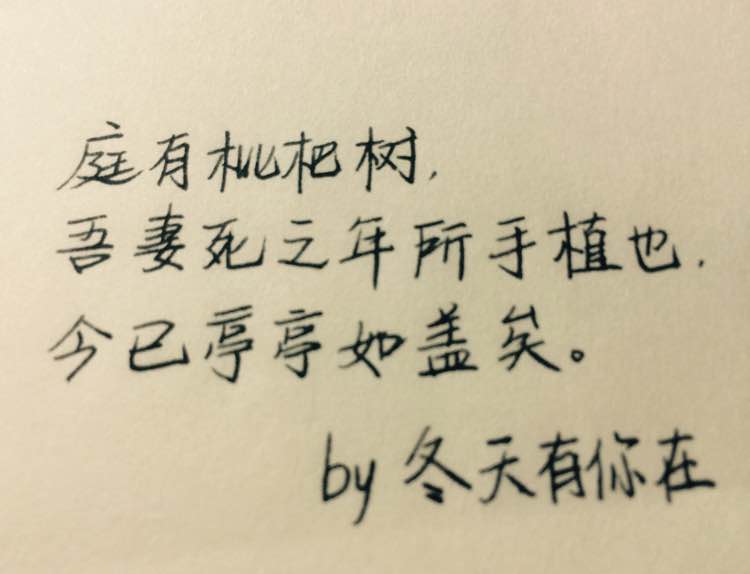 庭有枇杷树,
吾妻死之年所手植也,
今已亭亭如盖矣。
by 冬天有你在